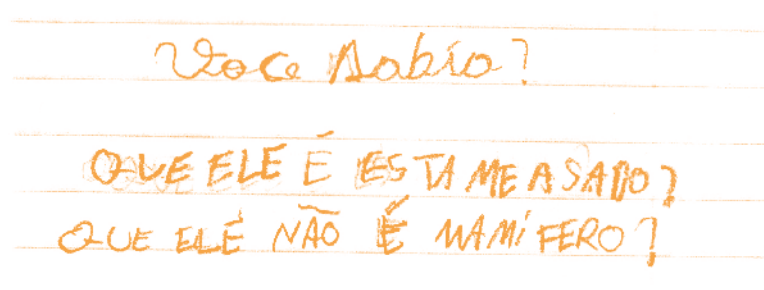 Voce sabia?
QUE ELE É ESTA MEASADO?
QUE ELE NÃO É MAMÍFERO?